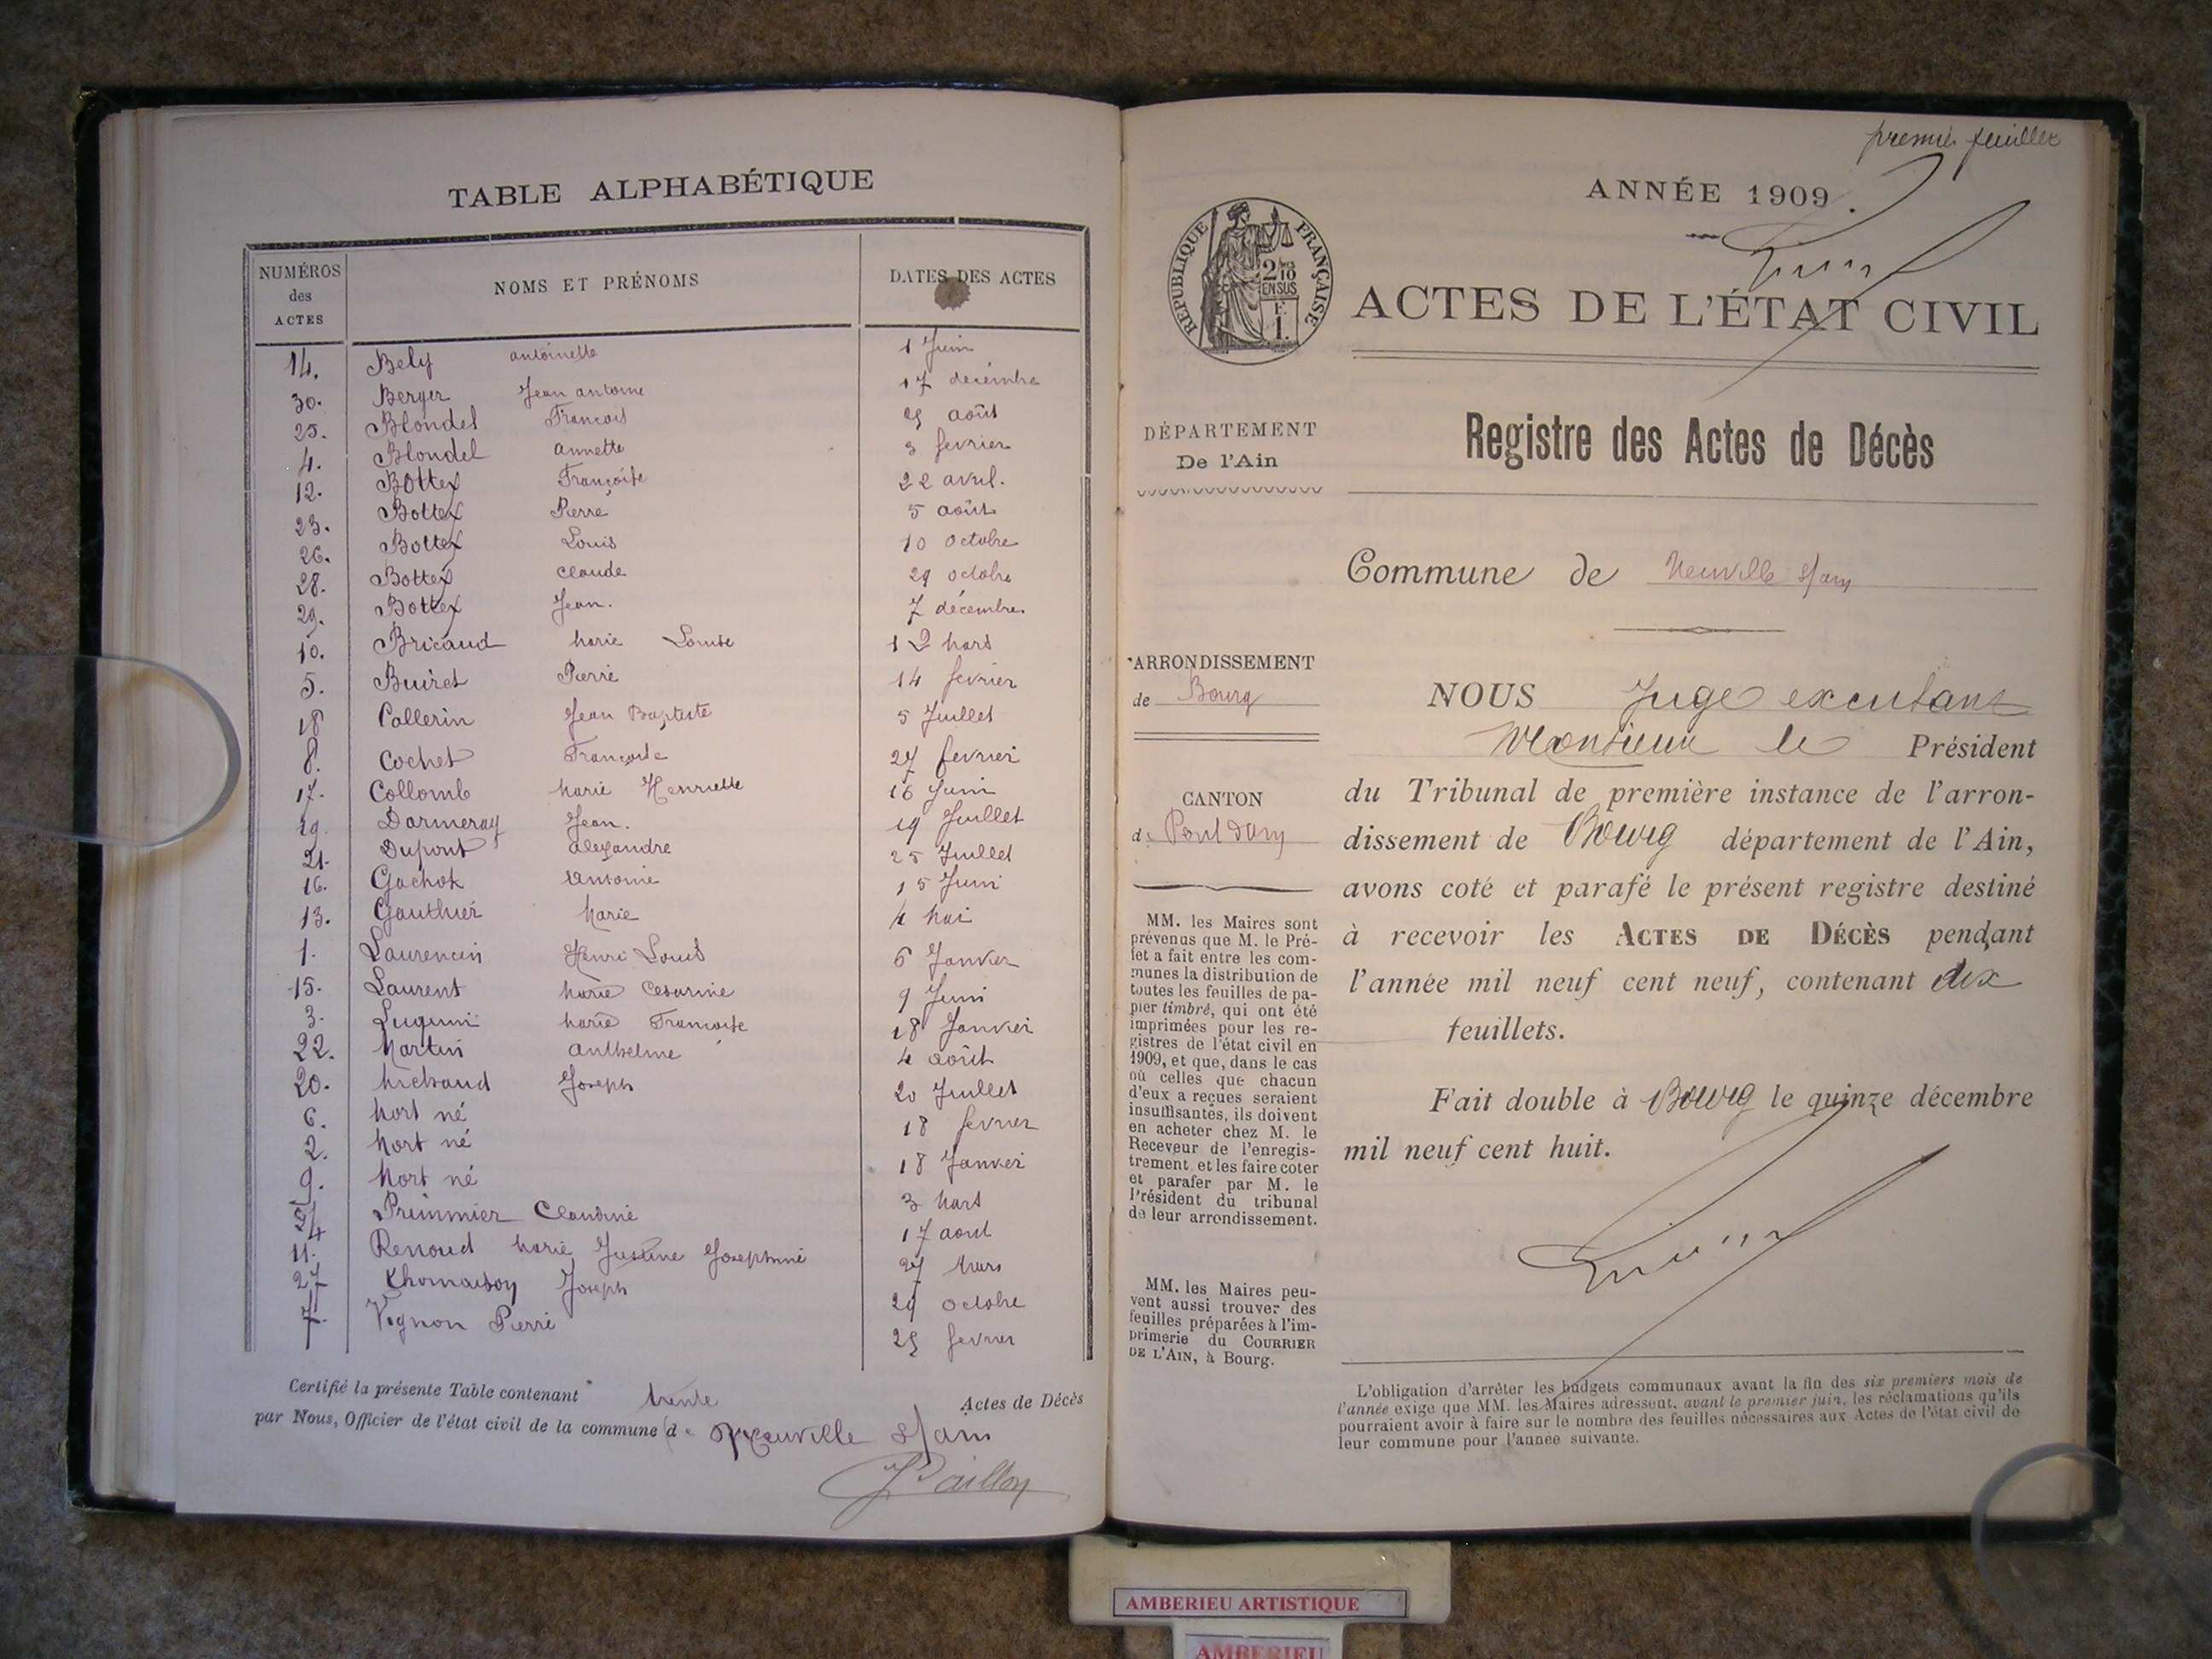 TABLE ALPHABÉTIQUE
NUMÉROS des ACTES NOMS ET PRÉNOMS DATES DES ACTES
14. Bely antoinette 1 Juin
30. Berger Jean antoine 17 decembre
25. Blondel François 25 août
4. Blondel annette 3 fevrier
12. Bottex Françoise 22 avril.
23. Bottex Pierre 5 août
26. Bottex Louis 10 octobre
28. Bottex claude 29 octobre
29. Bottex Jean. 7 décembre.
10. Bricaud Marie Louise 12 Mars
5. Buiret Pierre 14 fevrier
18 Callerin Jean Baptiste 5 Juillet
8. Cochet Françoise 27 fevrier
17. Collomb Marie Henriette 16 Juin
19. Darmeray Jean. 19 Juillet
21. Dupont alexandre 25 Juillet
16. Gachok Antoine 15 Juin
13. Gauthier Marie 4 Mai
1. Laurencin Henri Louis 6 Janvier
15. Laurent Marie Cesarine 9 Juin
3. Luguin Marie Françoise 18 Janvier
22. Martin anthelme 4 août
20. Michaud Joseph 20 Juillet
6. Mort né 18 fevrier
2. Mort né 18 Janvier
9. Mort né 3 Mars
24 Primmier Claudine 17 aout
11. Renoud Marie Justine Josephine 27 Mars
27 Thomasson Joseph 29 octobre
7. Vignon Pierre 25 fevrier
Certifié la présente Table contenant trente Actes de Décès
par Nous, Officier de l'état civil de la commune de Neuville s/ain
premier feuillet
ANNÉE 1909.
RÉPUBLIQUE FRANÇAISE
2/10 EN SUS
1F.
ACTES DE L'ÉTAT CIVIL
Registre des Actes de Décès
DÉPARTEMENT
De l'Ain
Commune de Neuville s/ain
ARRONDISSEMENT
de Bourg
CANTON
de Pont d'ain
MM. les Maires sont
prévenus que M. le Pré-
fet a fait entre les com-
munes la distribution de
toutes les feuilles de pa-
pier timbré, qui ont été
imprimées pour les re-
gistres de l'état civil en
1909, et que, dans le cas
où celles que chacun
d'eux a reçues seraient
insuffisantes, ils doivent
en acheter chez M. le
Receveur de l'enregis-
trement, et les faire coter
et parafer par M. le
Président du tribunal
de leur arrondissement.
MM. les Maires peu-
vent aussi trouver des
feuilles préparées à l'im-
primerie du COURRIER
DE L'AIN, à Bourg.
NOUS Juge excusant
Monsieur le Président
du Tribunal de première instance de l'arron-
dissement de Bourg département de l'Ain,
avons coté et parafé le présent registre destiné
à recevoir les ACTES DE DÉCÈS pendant
l'année mil neuf cent neuf, contenant dix
feuillets.
Fait double à Bourg le quinze décembre
mil neuf cent huit.
L'obligation d'arrêter les budgets communaux avant la fin des six premiers mois de
l'année exige que MM. les Maires adressent, avant le premier juin, les réclamations qu'ils
pourraient avoir à faire sur le nombre des feuilles nécessaires aux Actes de l'état civil de
leur commune pour l'année suivante.
AMBERIEU ARTISTIQUE
AMBERIEU